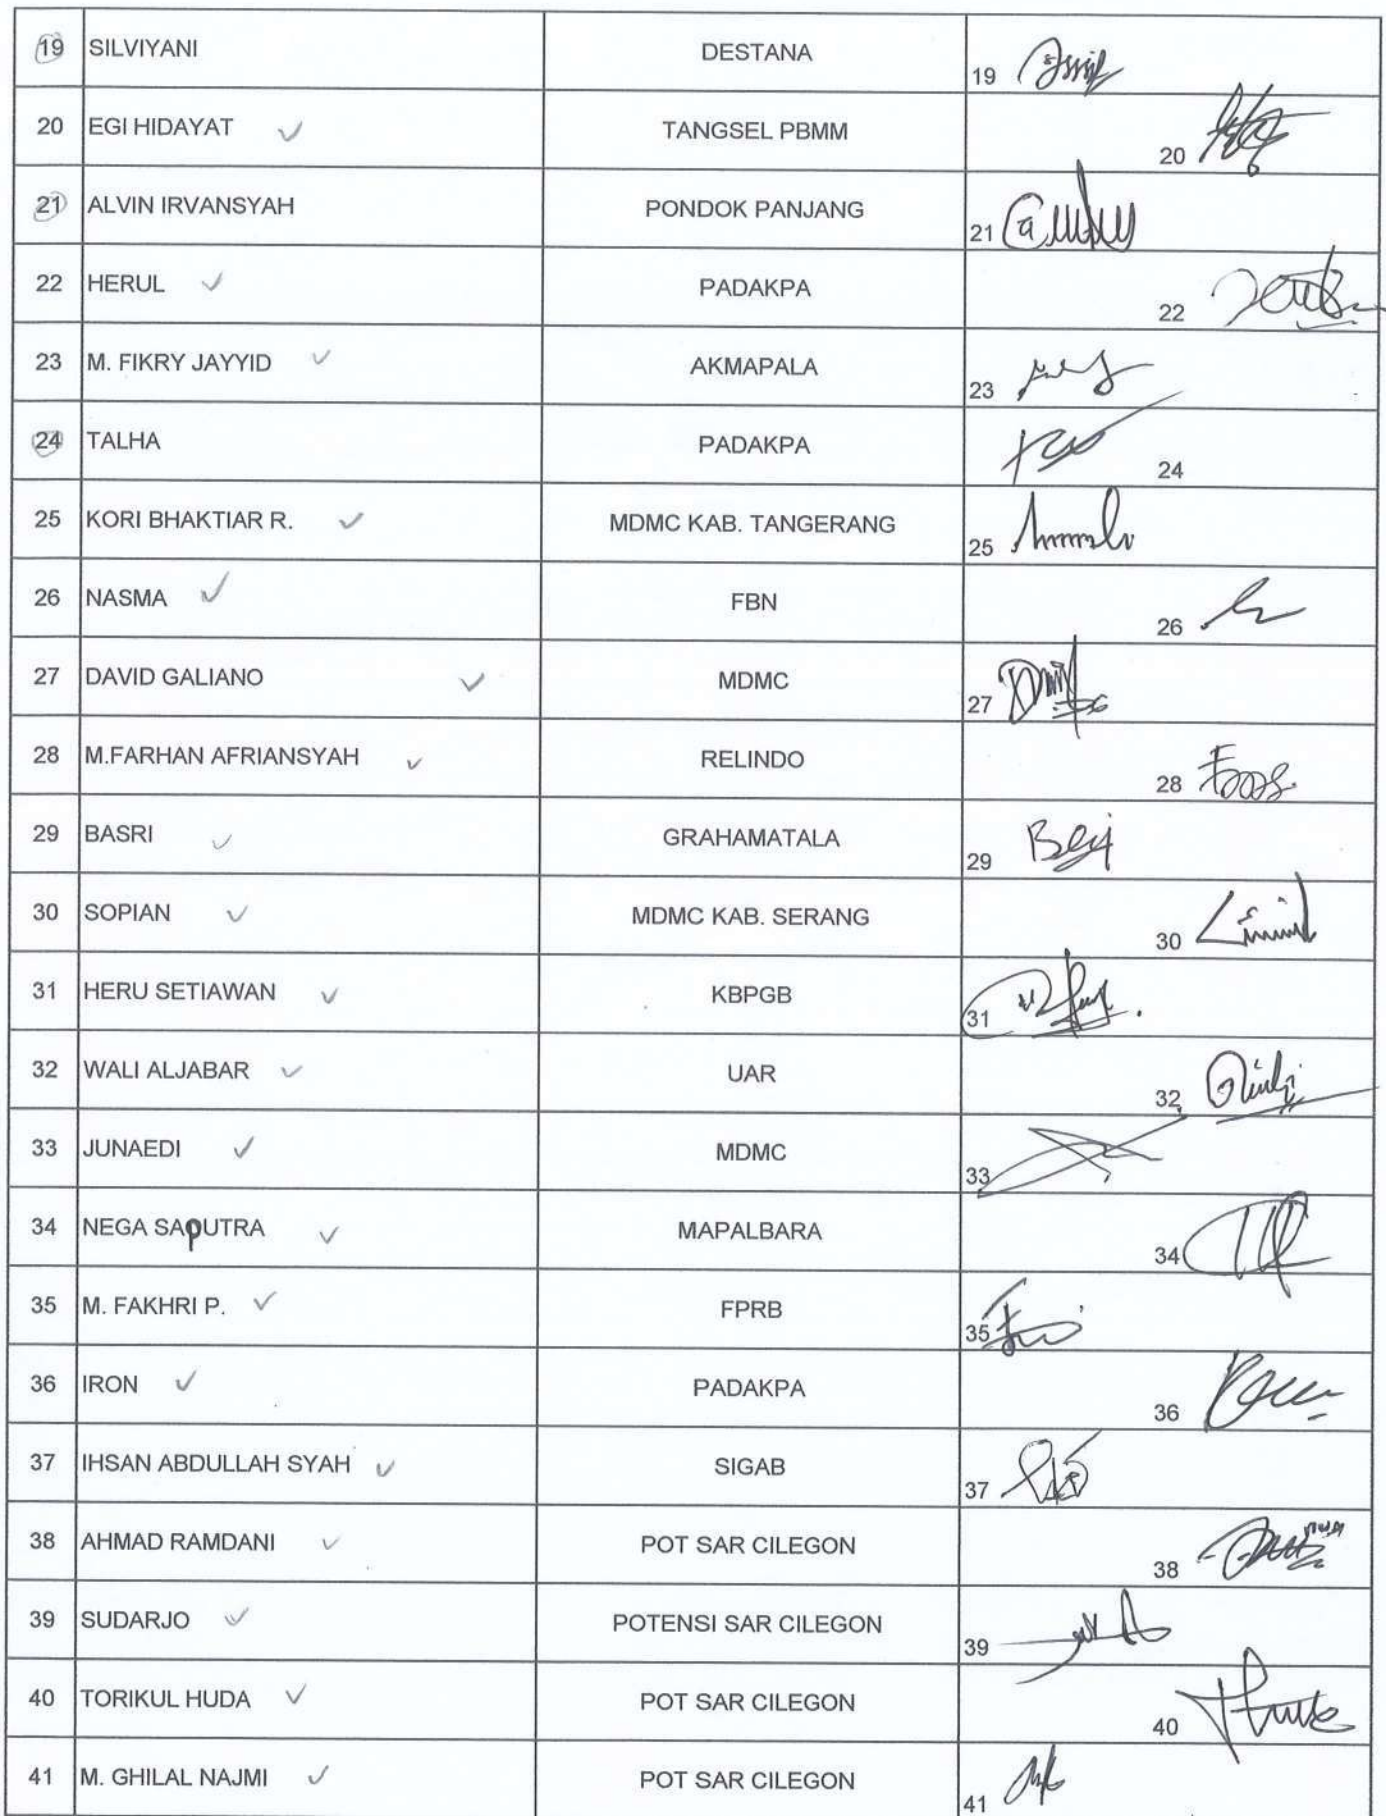 19 SILVIYANI DESTANA 19
20 EGI HIDAYAT TANGSEL PBMM 20
21 ALVIN IRVANSYAH PONDOK PANJANG 21
22 HERUL PADAKPA 22
23 M. FIKRY JAYYID AKMAPALA 23
24 TALHA PADAKPA 24
25 KORI BHAKTIAR R. MDMC KAB. TANGERANG 25
26 NASMA FBN 26
27 DAVID GALIANO MDMC 27
28 M.FARHAN AFRIANSYAH RELINDO 28
29 BASRI GRAHAMATALA 29
30 SOPIAN MDMC KAB. SERANG 30
31 HERU SETIAWAN KBPGB 31
32 WALI ALJABAR UAR 32
33 JUNAEDI MDMC 33
34 NEGA SAPUTRA MAPALBARA 34
35 M. FAKHRI P. FPRB 35
36 IRON PADAKPA 36
37 IHSAN ABDULLAH SYAH SIGAB 37
38 AHMAD RAMDANI POT SAR CILEGON 38
39 SUDARJO POTENSI SAR CILEGON 39
40 TORIKUL HUDA POT SAR CILEGON 40
41 M. GHILAL NAJMI POT SAR CILEGON 41